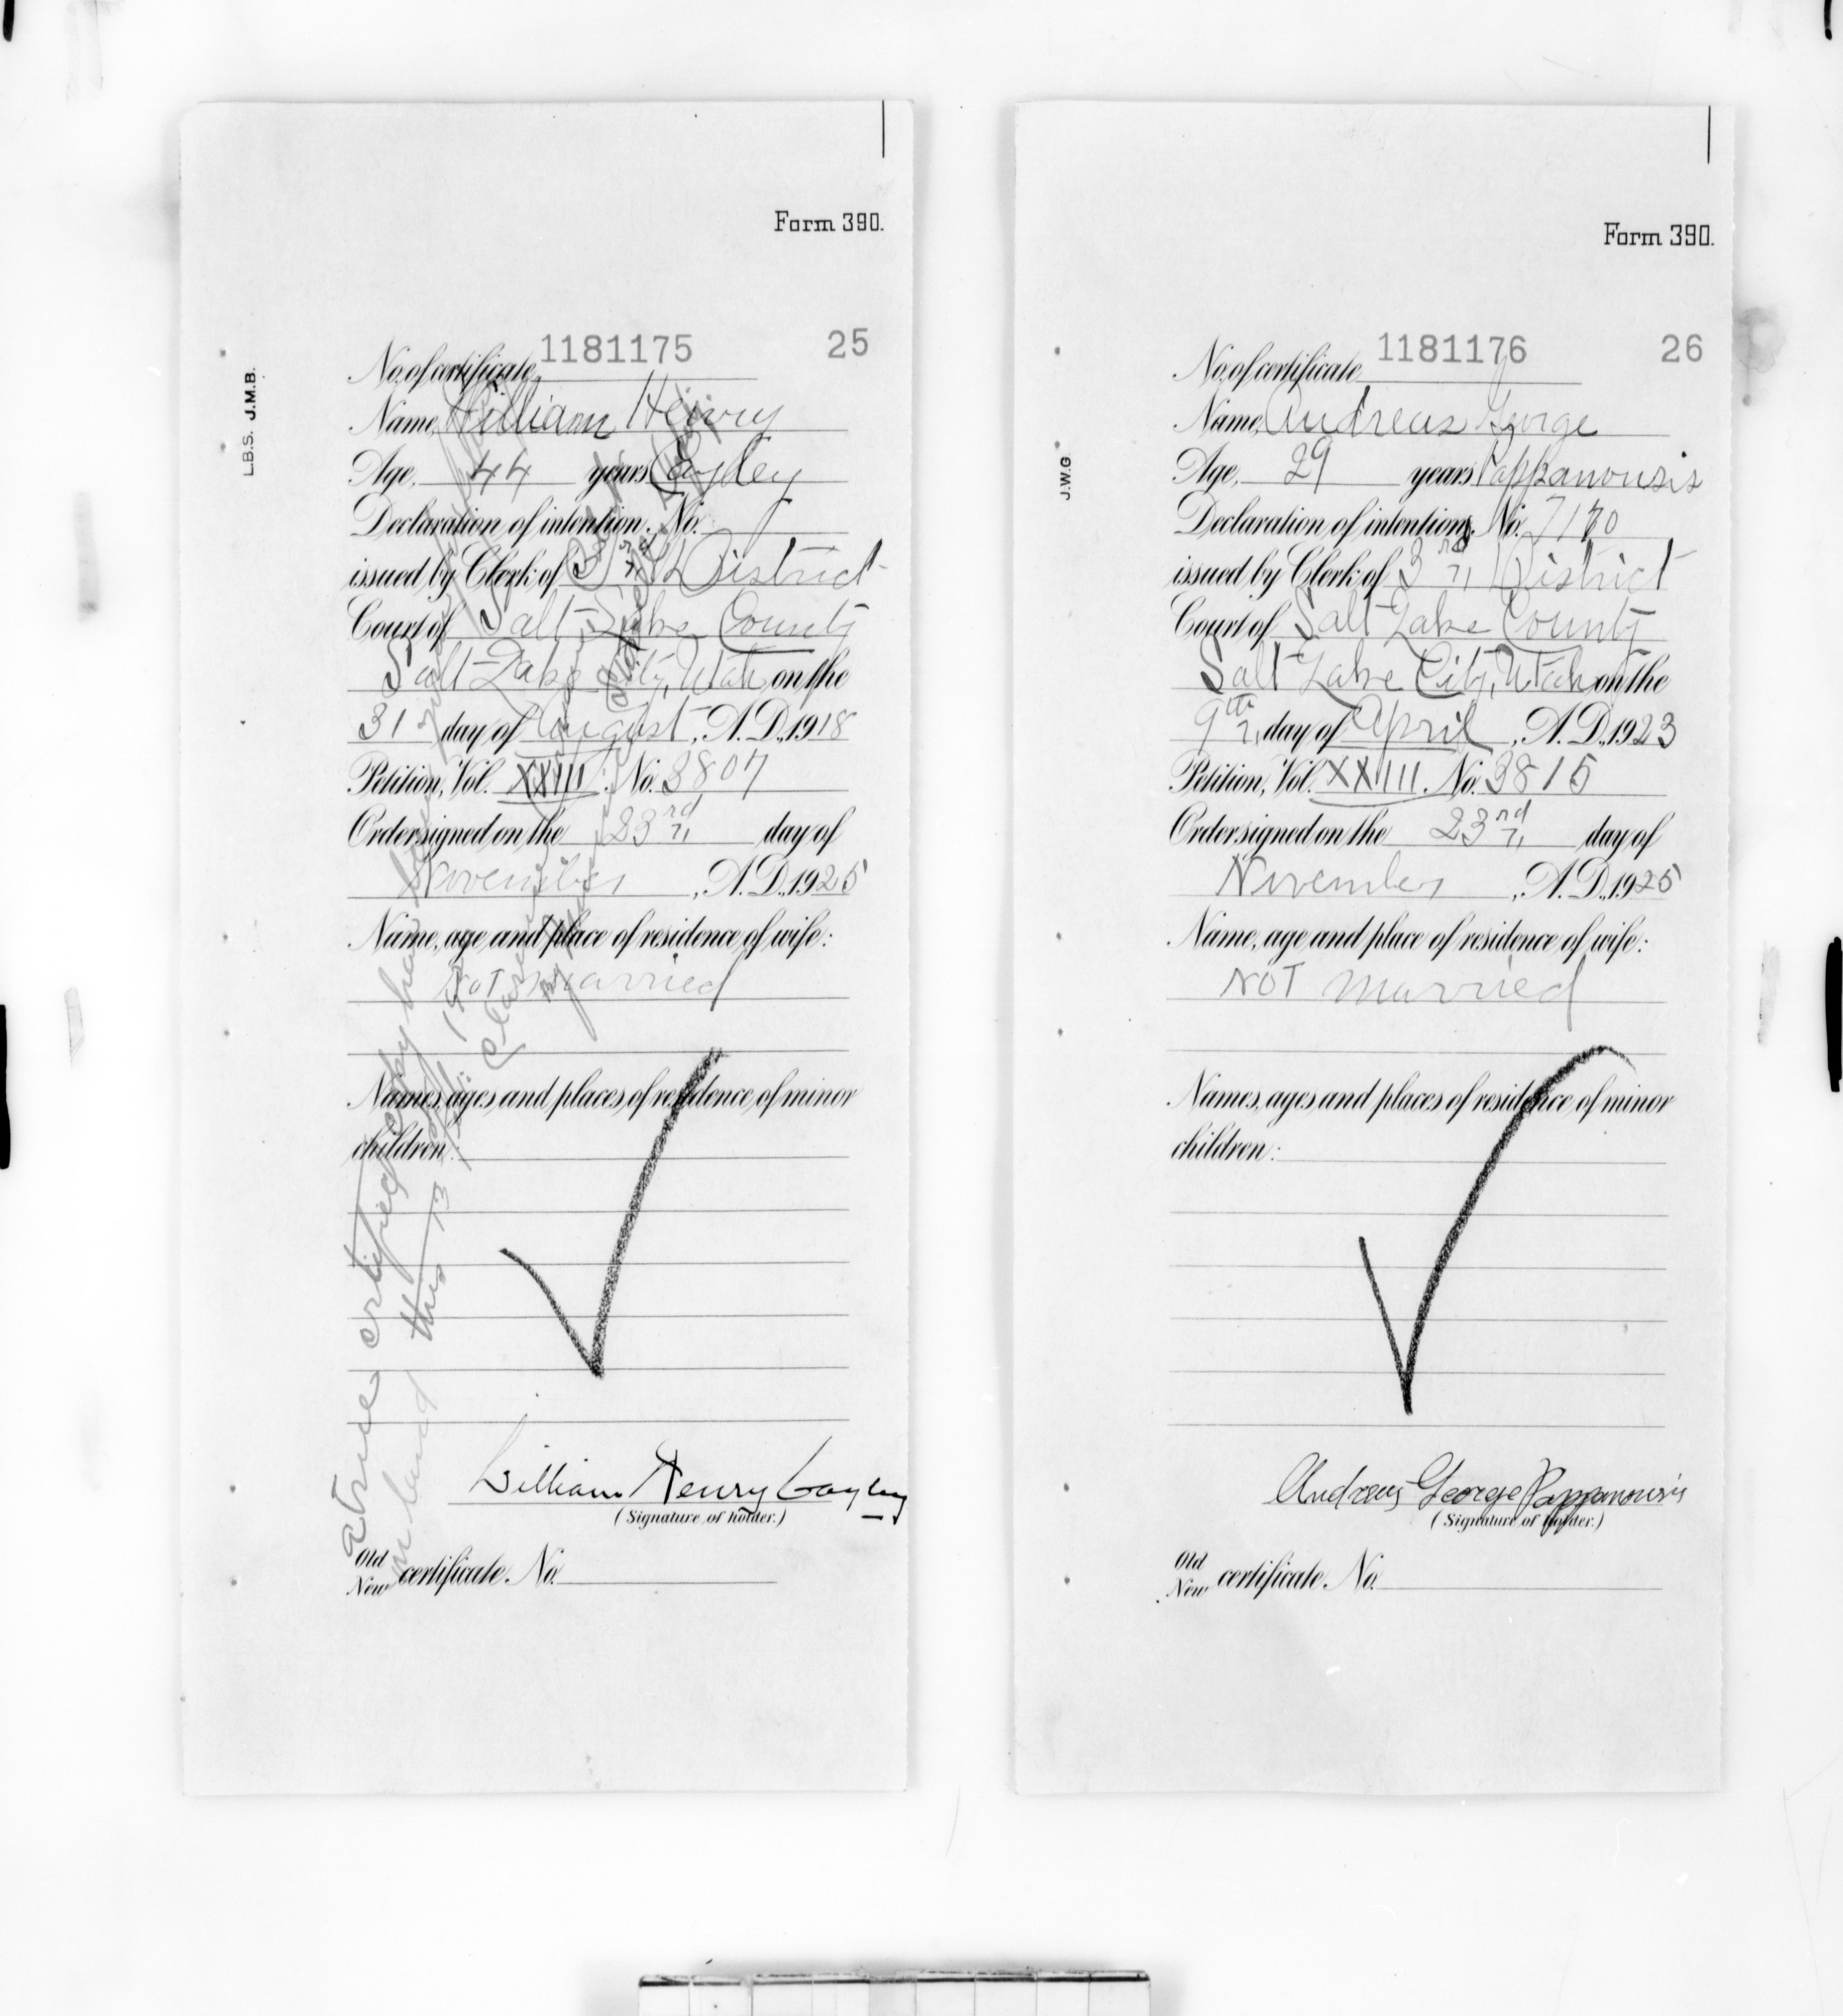 Form 390.
L.B.S. J.M.B.
No. of certificate, 1181175 25
Name, William Henry
Age, 44 years Cayley
Declaration of intention, No.
issued by Clerk of 3rd District
Court of Salt Lake County
Salt Lake City, Utah on the
31 day of August, A.D., 1918
Petition, Vol. XXIII, No. 3807
Order signed on the 23rd day of
November, A.D., 1925
Name, age and place of residence of wife:
NOT Married
Names, ages and places of residence of minor
children:
William Henry Cayley
(Signature of holder.)
Old
New certificate, No.
a true certified copy
this 13
Form 390.
J.W.G
No. of certificate, 1181176 26
Name, Andreas George
Age, 29 years Pappanousis
Declaration of intention, No. 7170
issued by Clerk of 3rd District
Court of Salt Lake County
Salt Lake City, Utah on the
9th day of April, A.D., 1923
Petition, Vol. XXIII, No. 3815
Order signed on the 23rd day of
November, A.D., 1925
Name, age and place of residence of wife:
NOT Married
Names, ages and places of residence of minor
children:
Andreas George Pappanousis
(Signature of holder.)
Old
New certificate, No.